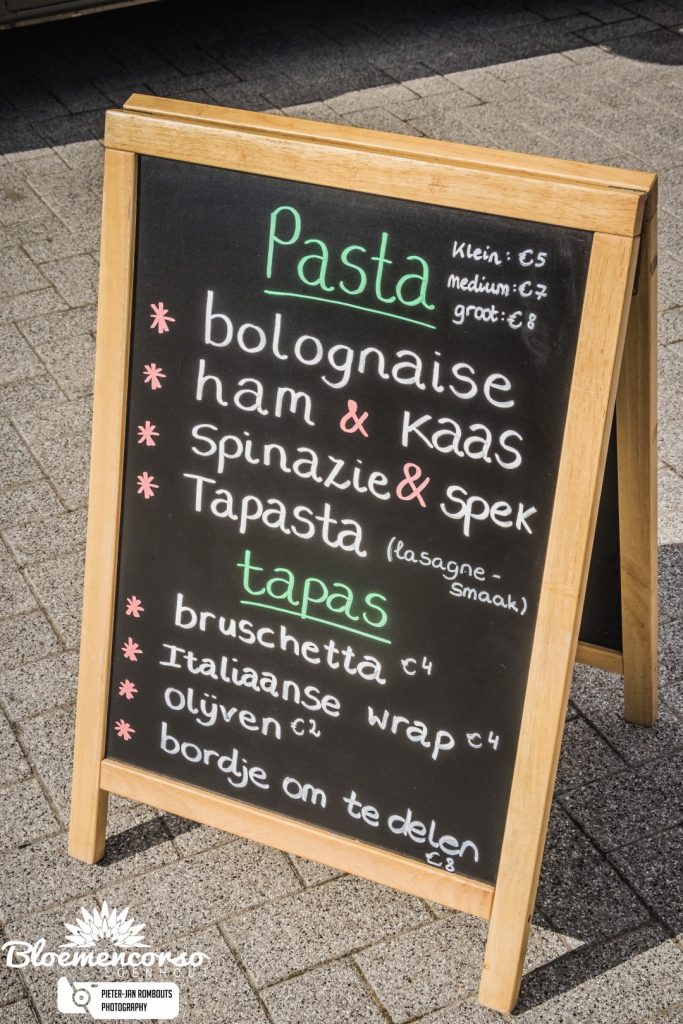 Pasta
Klein: €5
medium: €7
groot: €8
* bolognaise
* ham & kaas
* Spinazie & spek
* Tapasta (lasagne-
smaak)
tapas
* bruschetta €4
* Italiaanse wrap €4
* Olijven €2
* bordje om te delen
€8
Bloemencorso
PIETER-JAN ROMBOUTS
PHOTOGRAPHY